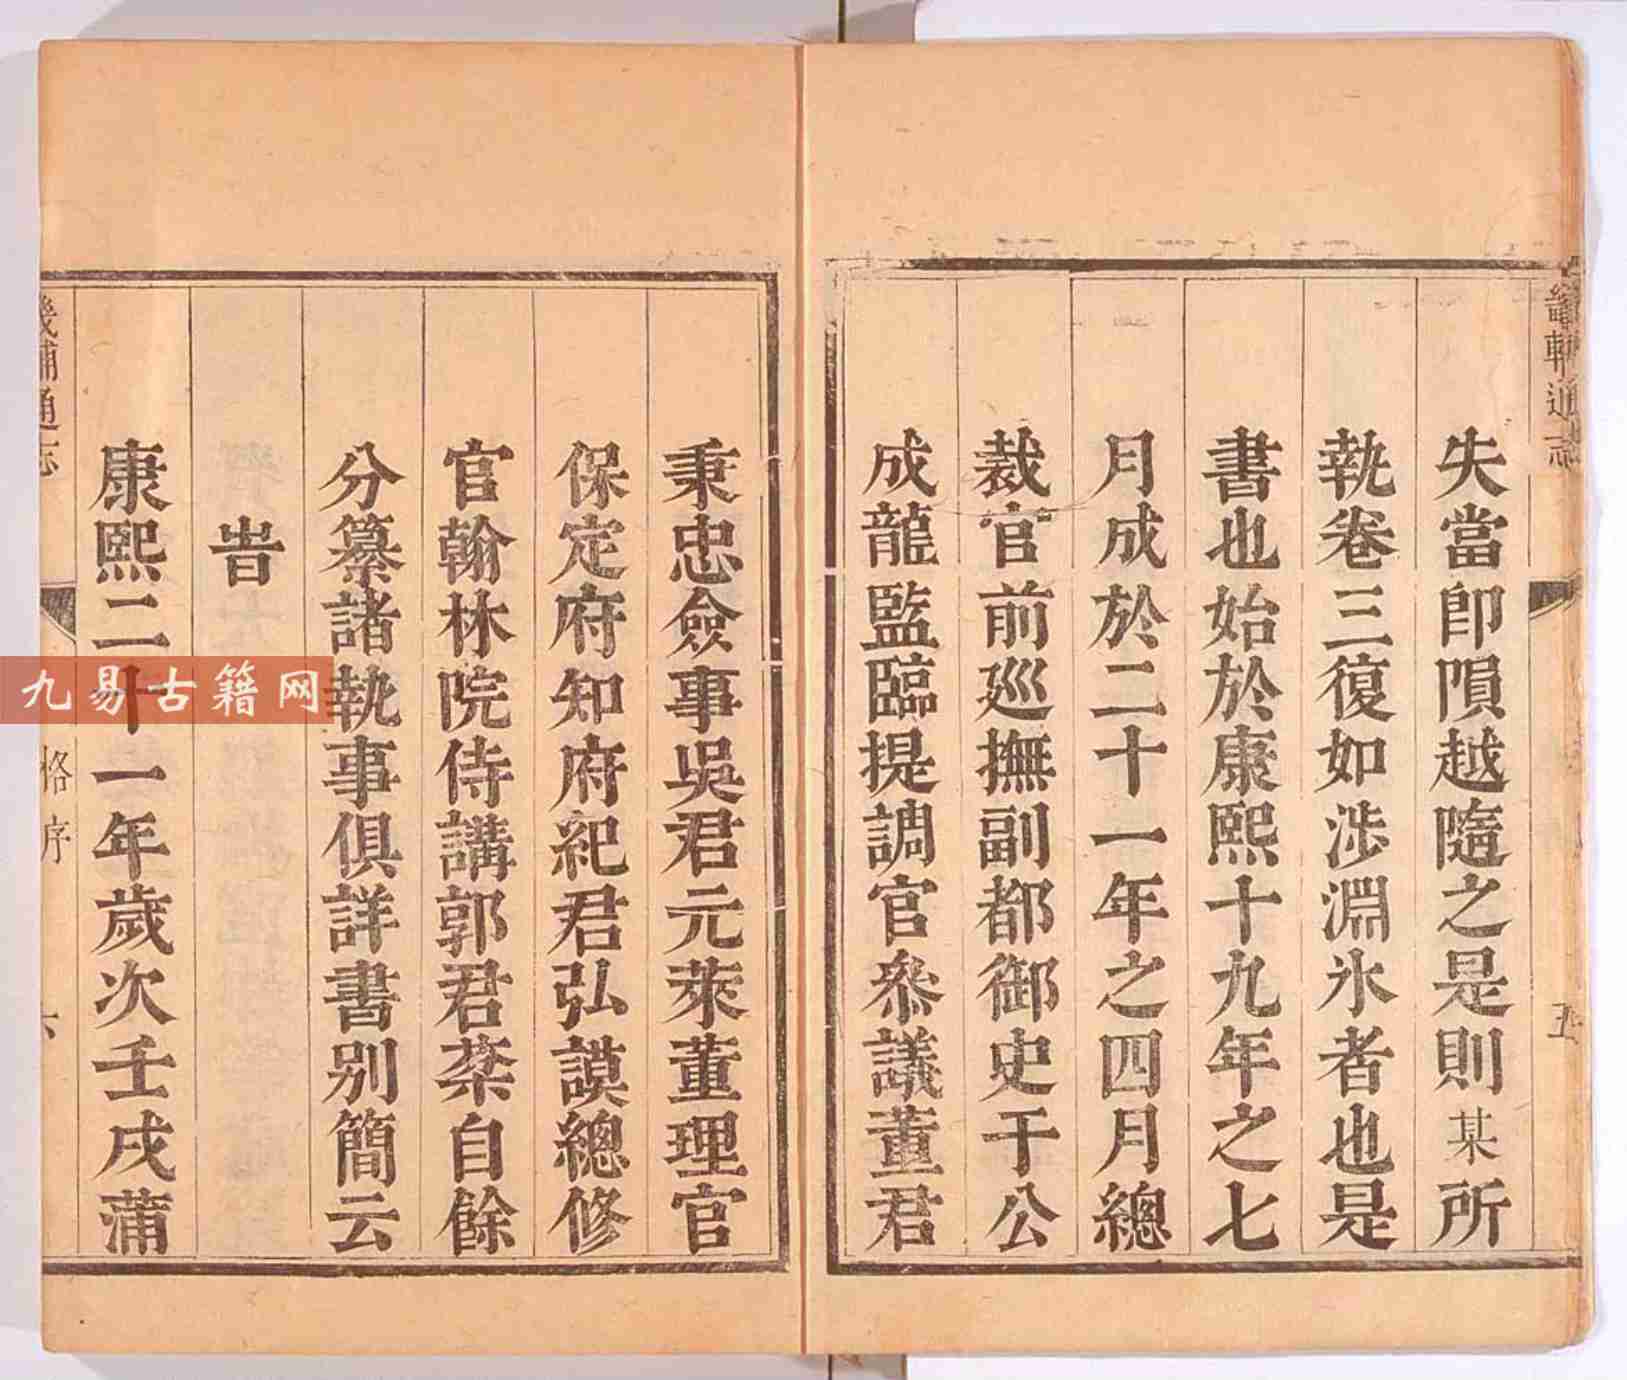 畿輔通志
五
失當卽隕越隨之是則某所
執卷三復如涉淵氷者也是
書也始於康熙十九年之七
月成於二十一年之四月總
裁官前廵撫副都御史于公
成龍監臨提調官叅議董君
秉忠僉事吳君元萊董理官
保定府知府紀君弘謨總修
官翰林院侍講郭君棻自餘
分纂諸執事俱詳書别簡云
旹
康熙二十一年歲次壬戌蒲
畿輔通志
格序
六
九易古籍网